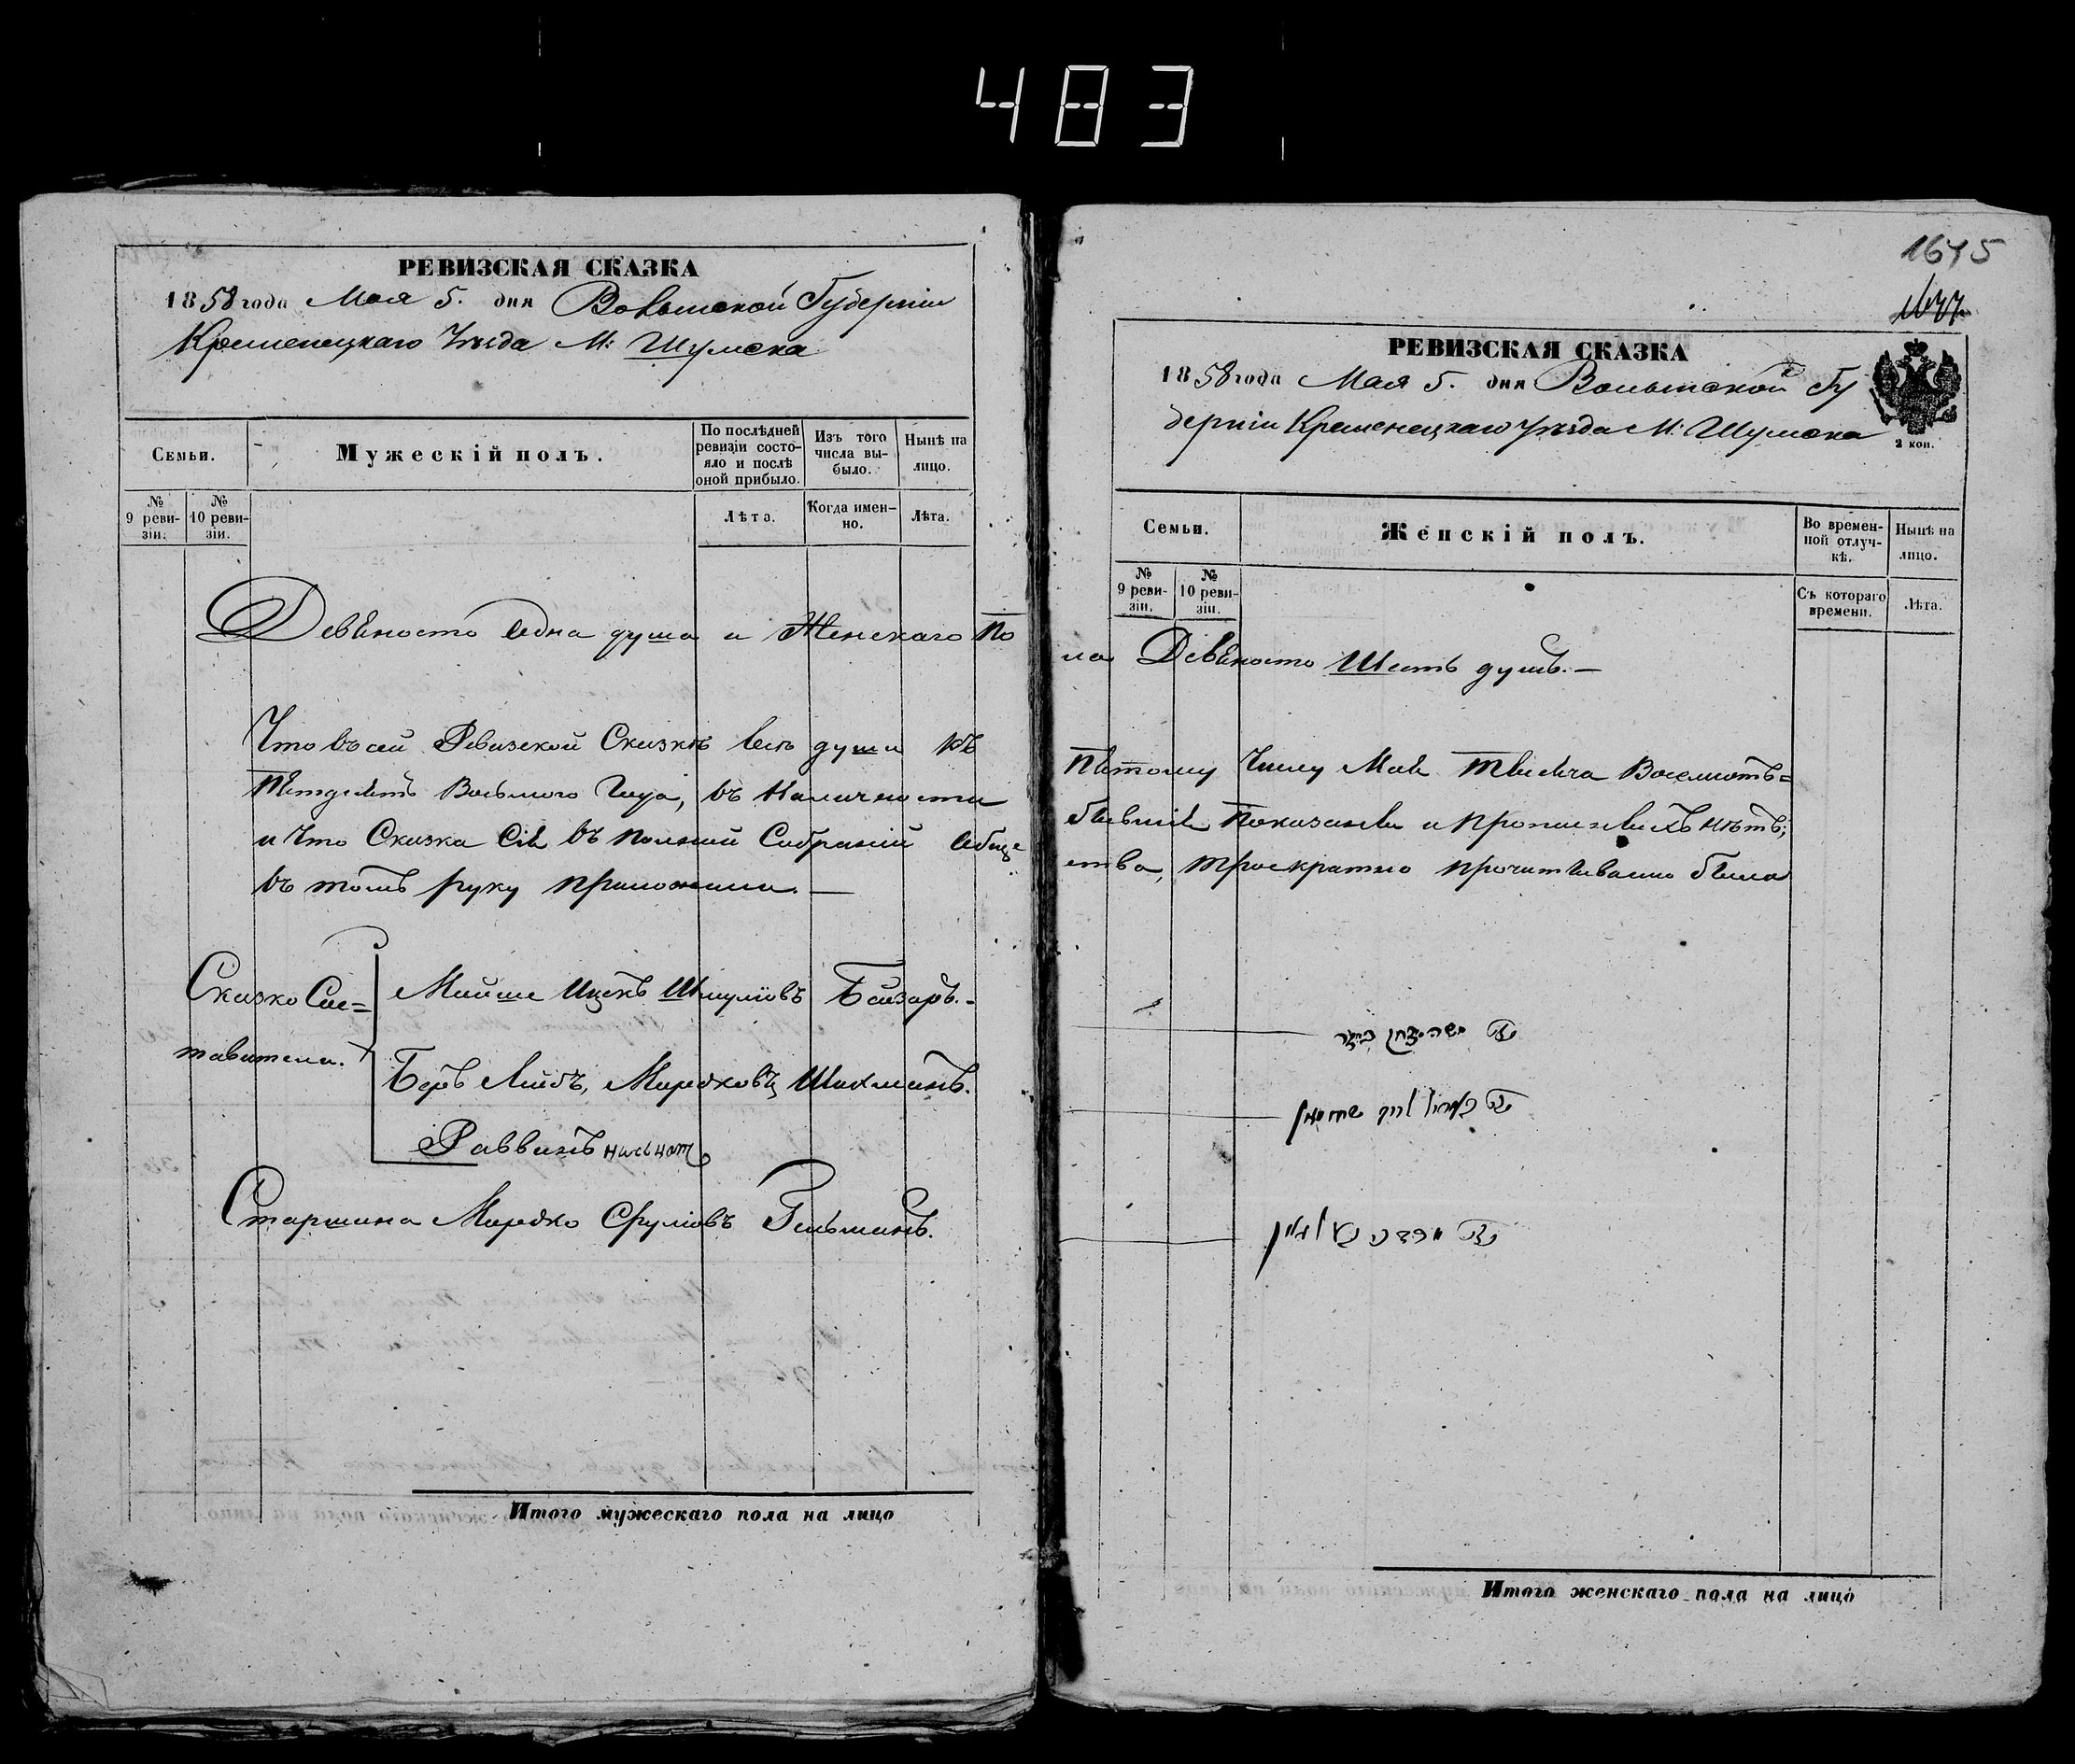 483
РЕВИЗСКАЯ СКАЗКА
1858 года Мая 5. дня Волынской Губерніи
Кременецкаго Уѣзда М: Шумска
Семьи.
Мужескій полъ.
По послѣдней ревизіи состо-
яло и послѣ
оной прибыло.
Изъ того
числа вы-
было.
Нынѣ на
лицо.
№
9 реви-
зіи.
№
10 реви-
зіи.
Лѣта.
Когда имен-
но.
Лѣта.
Девяносто одна душа и Женскаго по
Что въ сей Ревизской Сказкѣ всѣ души къ
Пятдесятъ Восьмого Года, въ Наличности
и что Сказка Сія въ полной Собраніи Обще
въ томъ руку приложили. —
Сказко Сос=
тавители.
Мойше Ицекъ Шмулiовъ Бейзаръ.-
Беръ Лейбъ, Мордковъ Шихманъ.
Раввинъ
Старшина Мордко Сруліовъ Гельманъ.
Итого мужескаго пола на лицо
1645
РЕВИЗСКАЯ СКАЗКА
1858 года Мая 5. дня Волынской Гу
берніи Кременецкаго Уѣзда М: Шумска
2 коп.
Семьи.
Женскій полъ.
Во времен-
ной отлуч-
кѣ.
Нынѣ на
лицо.
№
9 реви-
зіи.
№
10 реви-
зіи.
Съ котораго
времени.
Лѣта.
ла Девяносто Шесть душъ.—
Пятому Числу Мая Тысяча Восемсотъ=
бывшія показаны и прописныхъ нѣтъ;
ства, троекратно прочитывано была
Итого женскаго пола на лицо